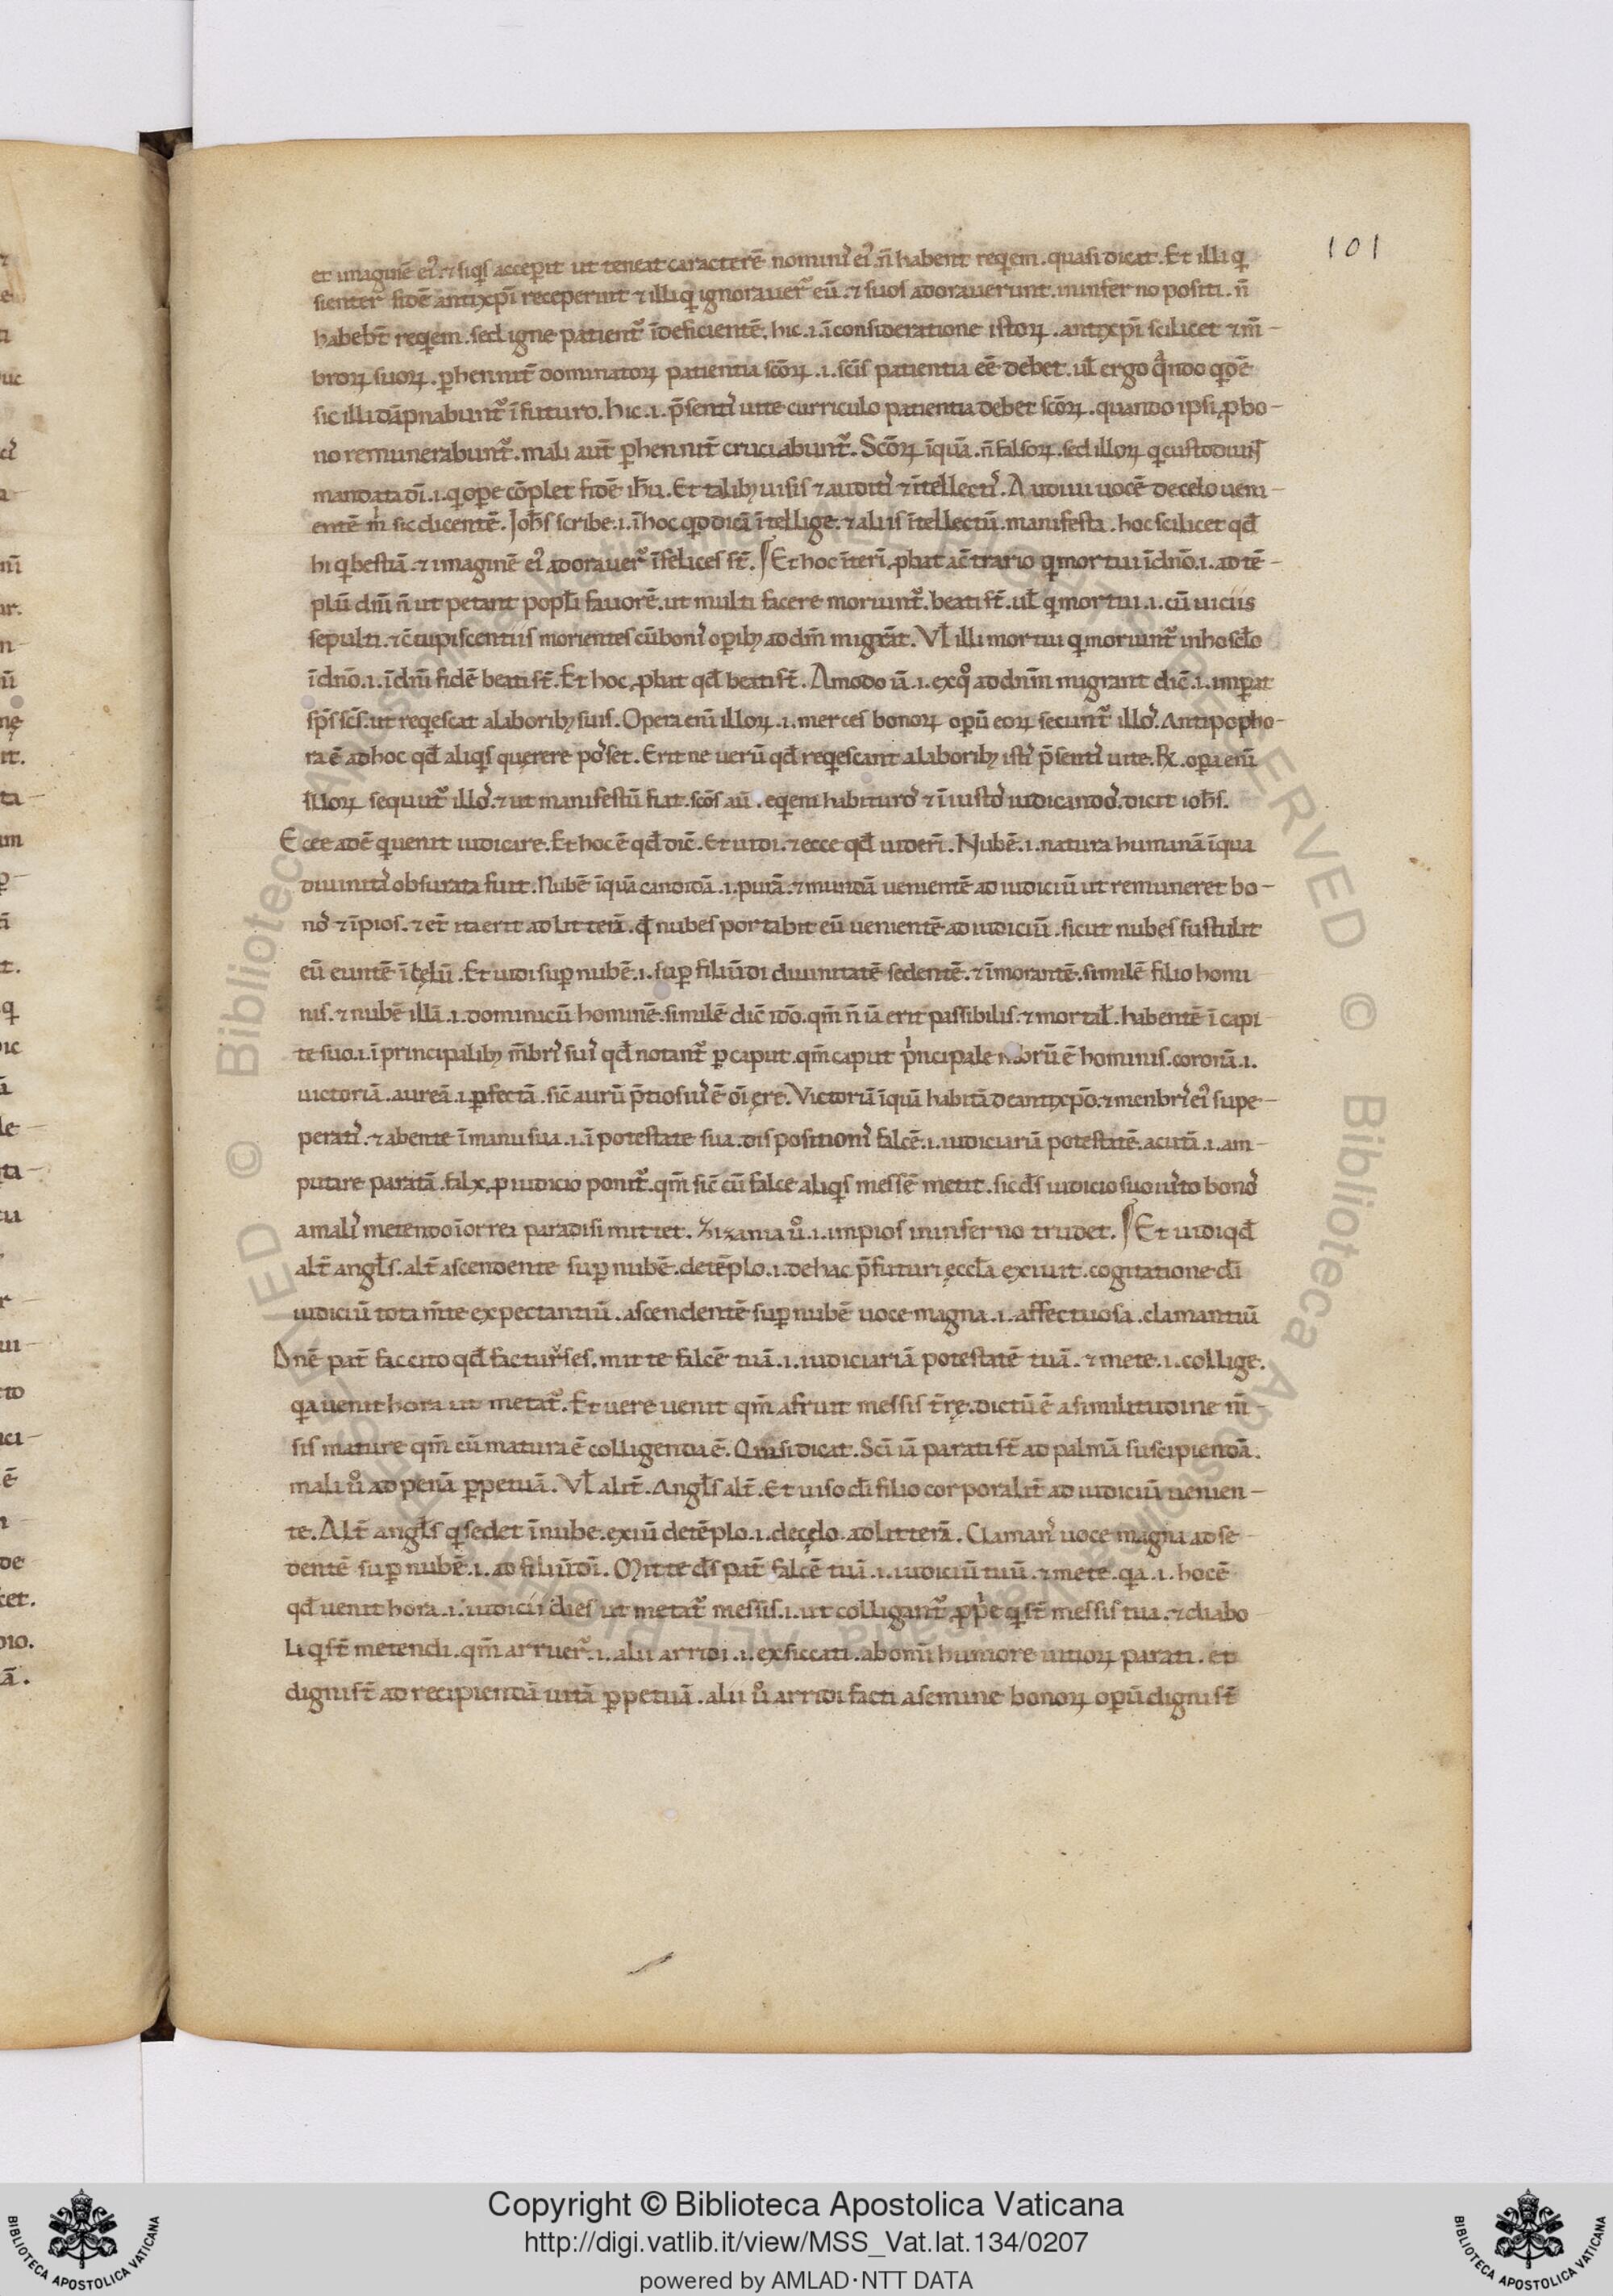 101
et imaginē ei᷒. ⁊ siq᷒s acceperit ut teneat caracterē nomini᷒ ei᷒. n̄ habent reqiem. quasi dicat. Et illi qi
sienter fidē antixpī receperunt ⁊ illi qi ignorauer᷒ eū. ⁊ suos adorauerunt. in inferno positi. n̄
habebt̄ reqiem. sed igne patient᷒ īdeficientē. hic .i. īconsideratione istoꝝ. antixpī scilicet ⁊ m̄-
broꝝ suoꝝ. ꝑhennit̄ dominatoꝝ patientia sc̄oꝝ .i. sc̄is patientia eē debet. ul̄ ergo qͣndo qidē
sic illi dāpnabunt᷒ ī futuro. hic .i. p̄senti᷒ uite curriculo patientia debet sc̄oꝝ. quando ipsi ꝓ bo-
no remunerabunt᷒. mali aut̄ ꝑhennit̄ cruciabunt᷒. Scōꝝ īquā. n̄ falsoꝝ. sed illoꝝ qi custodiunt
mandata dī .i. qi oꝑe cōplet fidē ihū. Et talibꝫ uisis ⁊ auditi᷒ ⁊ ītellecti᷒. Audiui uocē de celo ueni-
entē m̍ sic dicentē. Joh̄s scribe .i. ī hoc qod dicā ītellige. ⁊ aliis ītellectū. manifesta. hoc scilicet qd̄
hi qi bestiā ⁊ imaginē ei᷒ adorauer᷒ īfelices st̄. ¶ Et hoc īterī ꝓbat a c̄trario qi mortui ī dn̄o .i. ad tē-
plū dnī n̄ ut petant popl̄i fauorē. ut multi facere moriunt᷒. beati st̄. ul̄ qi mortui .i. cū uiciis
sepulti. ⁊ c̄cupiscentiis morientes cū boni᷒ oꝑibꝫ ad dm̄ migrāt. Vl̄ illi mortui qi moriunt᷒ in hoc sc̄lo
ī dn̄o .i. ī dnī fidē beati st̄. Et hoc ꝓbat qd̄ beati st̄. Amodo iā .i. ex qͦ ad dnm̄ migrant dic̄ .i. imꝑat
sp̄s sc̄s. ut reqiescāt a laboribꝫ suis. Opera eni᷒ illoꝝ .i. merces bonoꝝ oꝑū eoꝝ secunt᷒ illo᷒. Antipopho-
ra ē ad hoc qd̄ aliqis querere poset. Erit ne uerū qd̄ reqiescant a laboribꝫ isti᷒ p̄senti᷒ uite. R̶. oꝑa enī
illoꝝ sequunt᷒ illo᷒. ⁊ ut manifestū fiat. scōs au reqiem habituro᷒ ⁊ īiusto᷒ iudicando᷒. dicit ioh̄s.
Ecce adē qi uenit iudicare. Et hoc ē qd̄ dic̄. Et uidi. ⁊ ecce qd̄ uiderī. Nubē .i. natura humanā īqua
diuinita᷒ obscurata fuit. Nubē īquā candidā .i. purā. ⁊ mundā uenientē ad iudiciū ut remuneret bo-
no᷒ ⁊ īpios. ⁊ et̄ ita erit ad litterā. qd̄ nubes portabit eū uenientē ad iudiciū. sicut nubes sustulit
eū euntē ī cęlū. Et uidi suꝑ nubē .i. suꝑ filiū dī diuinitatē sedentē. ⁊ īmorantē. similē filio homi
nis. ⁊ nubē illā .i. dominicū hominē. similē dic̄ ido. qm̄ n̄ iā erit passibilis. ⁊ mortal̄. habentē ī capi
te suo .i. ī principalibꝫ m̄bri᷒ sui᷒ qd̄ notant᷒ ꝑ caput. qm̄ caput p̍ncipale ē hominis. coronā .i.
uictoriā. aureā .i. ꝑfectā. sic̄ aurū p̄tiosiu᷒ ē oī ęre. Victoriā īquā habitā de antixp̄o. ⁊ menbri᷒ ei᷒ supe-
perati᷒. ⁊ abente ī manu sua .i. ī potestate sua. dispositioni᷒ falcē .i. iudiciariā potestatē. acutā .i. am-
putare paratā. falx ꝓ iudicio ponit᷒. qm̄ sic̄ cū falce aliqis messē metit. sic d̄s iudicio suo iusto bono᷒
a mali᷒ metendo ī orrea paradisi mittet. Zizania uͦ .i. impios in inferno trudet. ¶ Et uidi qd̄
alt̄ angl̄s. alt̄ ascendente suꝑ nubē. de tēplo .i. de hac p̄futuri ęccl̄a exiuit. cogitatione dī
iudiciū tota m̄te expectantiū. ascendentē suꝑ nubē uoce magna .i. affectuosa. clamantiū
Dnē pat̄ fac cito qd̄ factur᷒ es. mitte falcē tuā .i. iudiciariā potestatē tuā. ⁊ mete .i. collige.
qia uenit hora ut metat᷒. Et uere uenit qm̄ aruit messis t̄rę. dictū ē a similitudine m̄-
sis mature qm̄ cū matura ē colligenda ē. Quasi dicat. Scī iā parati st̄ ad palmā suscipiendā.
mali uͦ ad penā ꝑpetuā. Vl̄ alit̄. Angl̄s alt̄. Et uiso dī filio corporalit̄ ad iudiciū uenien-
te. Alt̄ angl̄s qi sedet ī nube. exiiū de tēplo .i. de cęlo. ad litterā. Claman᷒ uoce magna ad se-
dentē suꝑ nubē .i. ad filiū dī. Mitte d̄s pat̄ falcē tuā .i. iudiciū tuū. ⁊ mete. qia .i. hoc ē
qd̄ uenit hora .i. iudicii dies ut metat᷒ messis .i. ut colligant᷒ ꝓp̍e qi st̄ messis tua. ⁊ diabo
li qi st̄ metendi. qm̄ arruer᷒ .i. alii arridi .i. exsiccati. ab oni᷒ humore uitioꝝ parati. et
digni st̄ ad recipiendā uitā ꝑpetuā. alii uͦ arridi facti a semine bonoꝝ oꝑū digni st̄
Copyright © Biblioteca Apostolica Vaticana
http://digi.vatlib.it/view/MSS_Vat.lat.134/0207
powered by AMLAD·NTT DATA